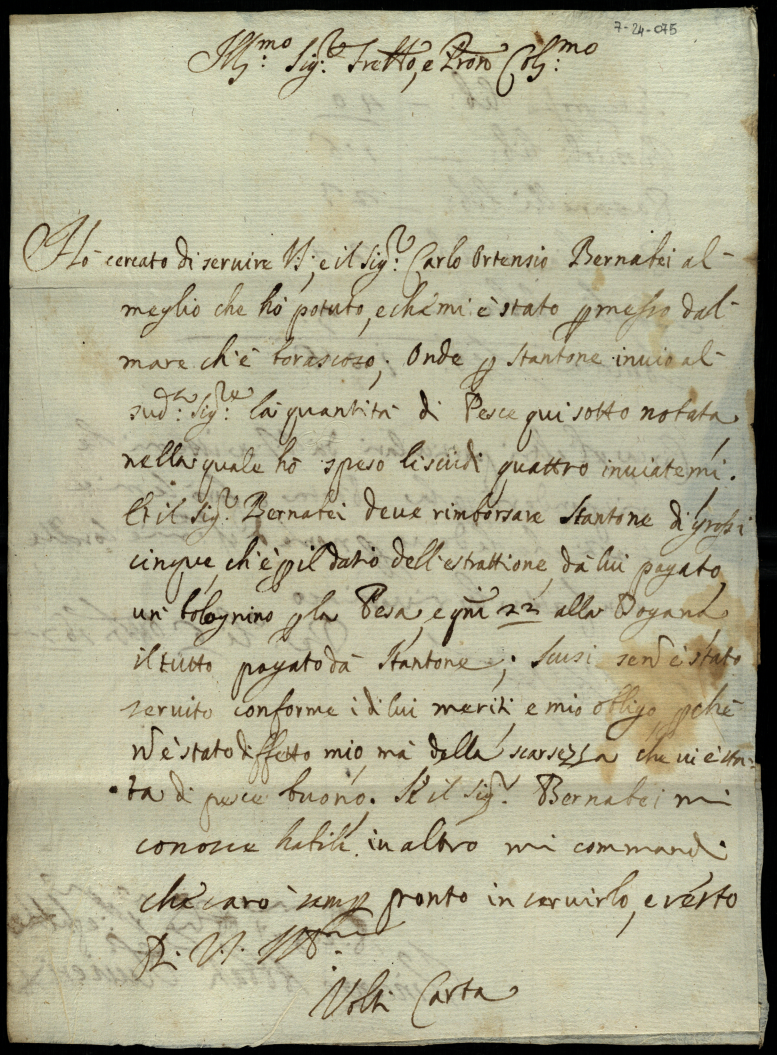 7-24-075
Ill:mo Sig:r Fratto, e Pron Col:mo
Hò cercato di seruire V.S., e il Sig:r Carlo Ortensio Bernabei al
meglio che hò potuto, e che mi è stato pmesso dal
mare ch'è borascoso; Onde p Stantone inuio al
sud:o Sig:re la quantità di Pesce qui sotto notata
nella quale hò speso li scudi quattro inuiatemi.
Et il Sig:r Bernabei deue rimborsare Stantone di grossi
cinque, ch'è p il datio dell'estrattione, dà lui pagato,
un bolognino p la Pesa, e qni 22 alla Dogana
il tutto pagato dà Stantone; Scusi se nõ è stato
seruito conforme i di lui meriti, e mio obligo, pchè
nõ è stato diffetto mio, mà della scarsezza che ui è sta-
ta di pesce buono. Se il Sig:r Bernabei mi
conosce habile in altro mi commandi
che sarò semp pronto in seruirlo, e resto
Di V.S. Ill:ma
Volti Carta